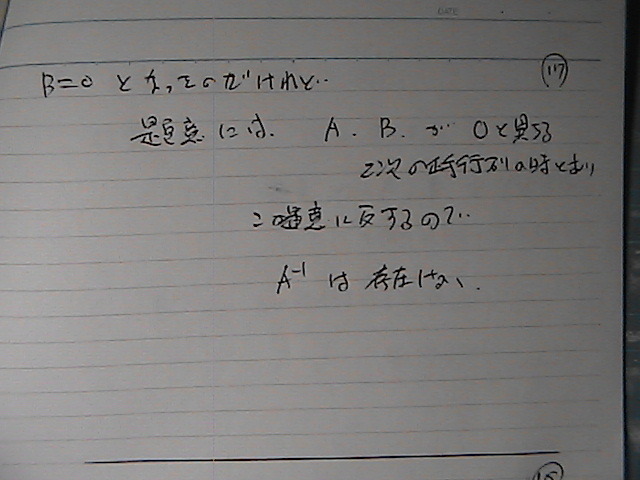 DATE
17
B=0 となったのだけれど‥
題意には. A. B. が 0と異る
2次の正方行列の時とあり
この題意に反するので‥
A⁻¹ は 存在しない.